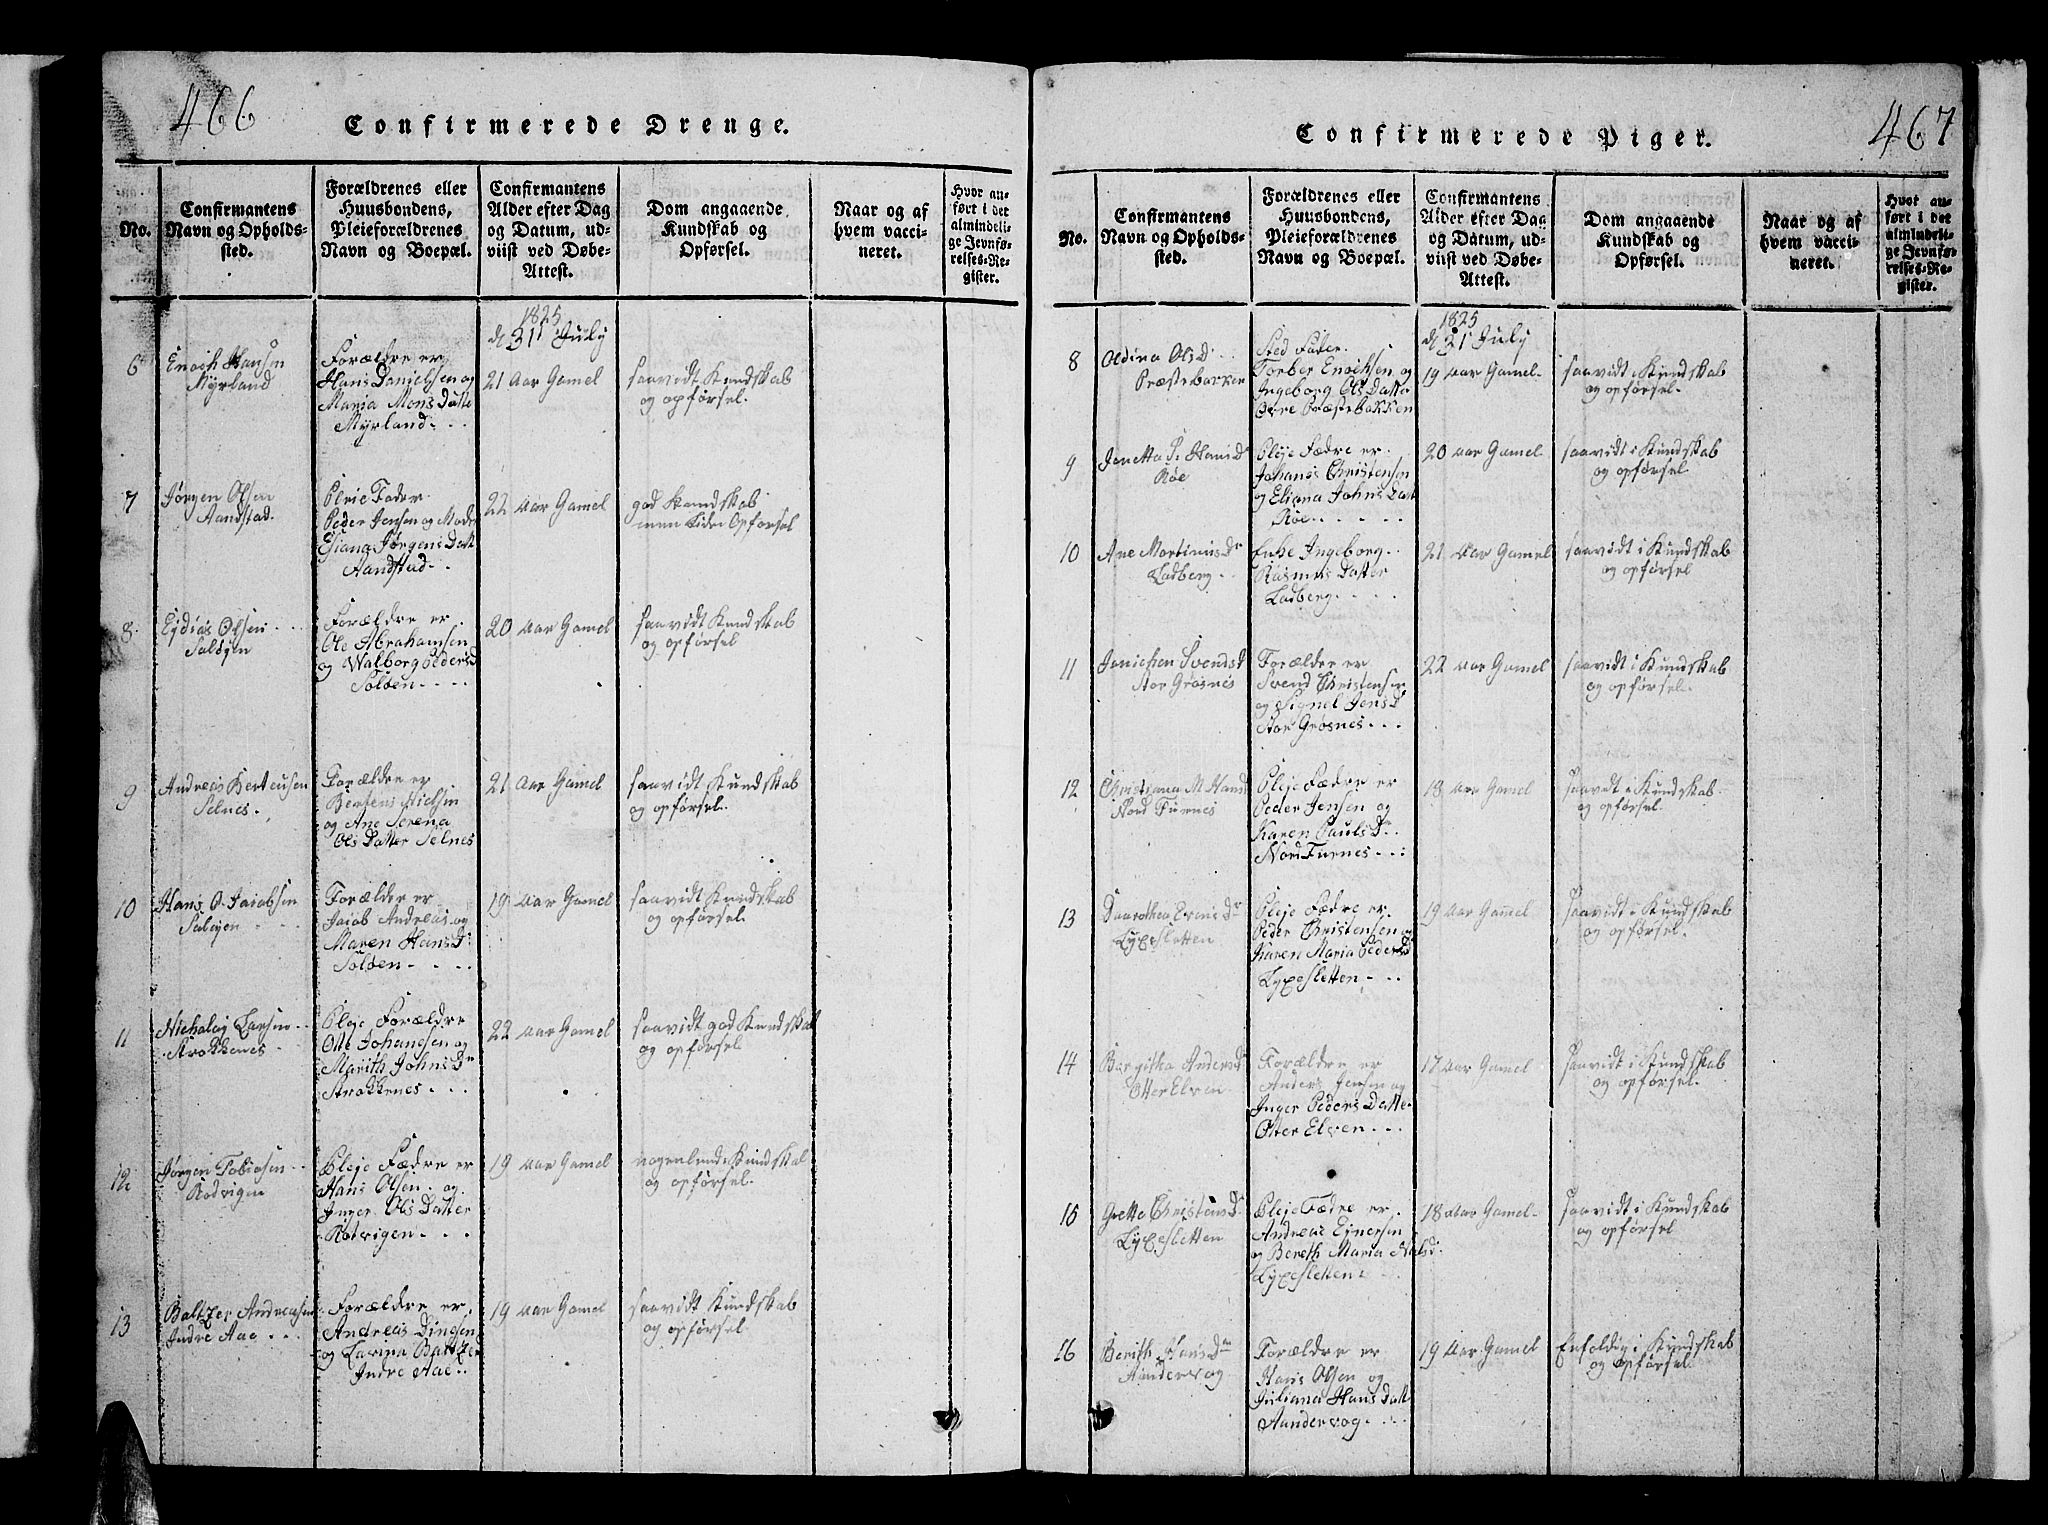 466
Confirmerede Drenge.
No.
Confirmantens Navn og Opholds-sted.
Forældrenes eller Huusbondens, Pleieforældrenes Navn og Boepæl.
Confirmantens Alder efter Dag og Datum, ud-viist ved Døbe-Attest.
Dom angaaende Kundskab og Opførsel.
Naar og af hvem vacci-neret.
Hvor an-ført i det almindeli-ge Jevnfø-relses-Re-gister.
1825
d 31' July
6
Enoch Hansen
Myrland
Forældre er
Hans Danielsen og
Maria Mons Datte
Myrland
21 Aar Gamel
saavidt Kundskab
og opførsel.
7
Jørgen Olsen
Aandstad.
Pleie Fader
Peder Jensen og Mode
Aandstad
22 Aar Gamel
god Kundskab
men Opførsel
8
Olsen
Forældre er
Ole Abrahamsen
og Walborg Peders d
Solöen
20 Aar Gamel
saavidt Kundskab
og opførsel
9
Andreas Bertensen
Selnes.
Forældre er
Bertens Nielsen
og Ane Serena
Ols Datter Selnes
21 Aar Gamel
saavidt Kundskab
og opførsel.
10
Hans O Jacobsen
Forældre er
Jacob Andreas og
Maren Hans D:
Solöen
19 Aar Gamel
saavidt Kundskab
og opførsel.
11
Nicholay Larsen
Strokkenes
Pleje Forældre
Otte Johansen og
Marith Johns Dr
Strokkenes
22 Aar Gamel
saavidt god Kundskab
og opførsel
12
Jørgen Tobiasen
Rodvigen
Pleje Fædre er
Hans Olsen og
Inger Ols Datter
Rotvigen
19 Aar Gamel
nogenlunde Kundskab
og opførsel.
13
Baltzer Andreasen
Indre Aae
Forældre er
Andreas Dinesen
og Lavina Baltzer
Indre Aae
19 Aar Gamel
saavidt Kundskab
og opførsel
467
Confirmerede Piger.
No.
Confirmantens Navn og Opholds-sted.
Forældrenes eller Huusbondens, Pleieforældrenes Navn og Boepæl.
Confirmantens Alder efter Dag og Datum, ud-viist ved Døbe-Attest.
Dom angaaende Kundskab og Opførsel.
Naar og af hvem vacci-neret.
Hvor an-ført i det almindeli-ge Jevnfø-relses-Re-gister.
1825
d 31' July
8
Oldina Ols D
Præstebakken
Sted Fader
Torber Enochsen og
Ingeborg Ols Datter
Øvre Præstebakken
19 Aar Gamel
saavidt i Kundskab
og opførsel.
9
Jenetta P. Hans D
Røe
Pleje Fædre er
Johans Christensen
og Eliana Johns Datt
Røe
20 Aar Gamel
saavidt i Kundskab
og opførsel
10
Ane Mortinus Dr
Ladberg
Enke Ingeborg
Rasmus Datter
Ladberg
21 Aar Gamel
saavidt i Kundskab
og opførsel
11
Janichen Svends d
Stor Grøsnes
Forældre er
Svend Christensen
og Signel Jens D
Stor Grøsnes
22 Aar Gamel
saavidt i Kundskab
og opførsel.
12
Christiana M Hans
Nord Furnes
Pleje Fædre er
Peder Jensen og
Karen Pauls Dr
Nord Furnes
18 Aar Gamel
saavidt i Kundskab
og opførsel.
13
Daarothea Evens Dr
Lyxesletten
Pleje Fædre er
Peder Christensen og
Karen Maria Peders D
Lyxesletten
19 Aar Gamel
saavidt i Kundskab
og opførsel.
14
Anders D
Otter Elven
Forældre er
Anders Jensen og
Inger Peders Datte
Otter Elven
17 Aar Gamel
saavidt i Kundskab
og opførsel.
15
Grette Christens Dr
Lyxesletten
Pleje Fædre er
Andreas Ejnersen
og Bereth Maria Niels d
Lyxesletten
18 Aar Gamel
saavidt i Kundskab
og opførsel
16
Berith Hans Dr
Aandervog
Forældre er
Hans Olsen og
Juliana Hans Datt
Aandervog
19 Aar Gamel
Enfoldig i Kundskab
og opførsel.